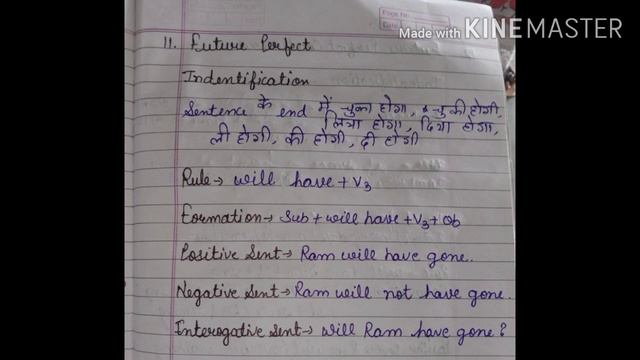 Made with KINEMASTER
Page No.
Date
11. Future Perfect
Indentification
Sentence के end में चुका होगा, चुकी होगी,
लिया होगा, दिया होगा,
ली होगी, की होगी, दी होगी
Rule→ will have + V3
Formation→ Sub + will have + V3 + Ob
Positive Sent→ Ram will have gone.
Negative Sent→ Ram will not have gone.
Interogative Sent→ Will Ram have gone?